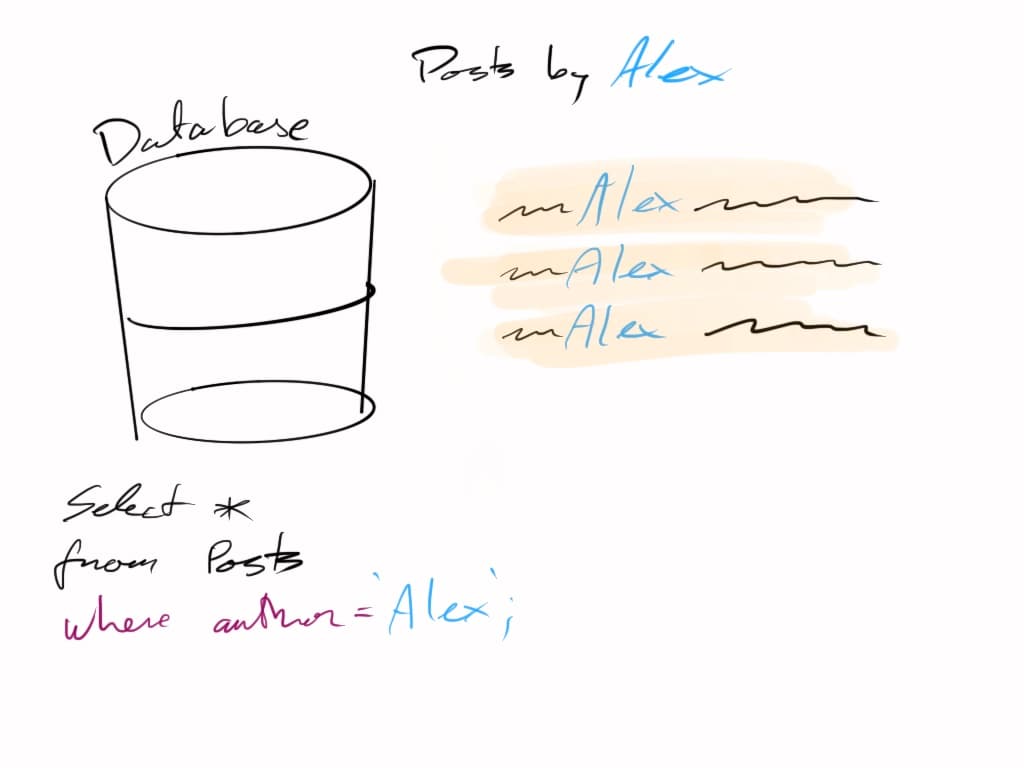 Posts by Alex
Database
Alex
Alex
Alex
Select *
from Posts
where author = 'Alex';